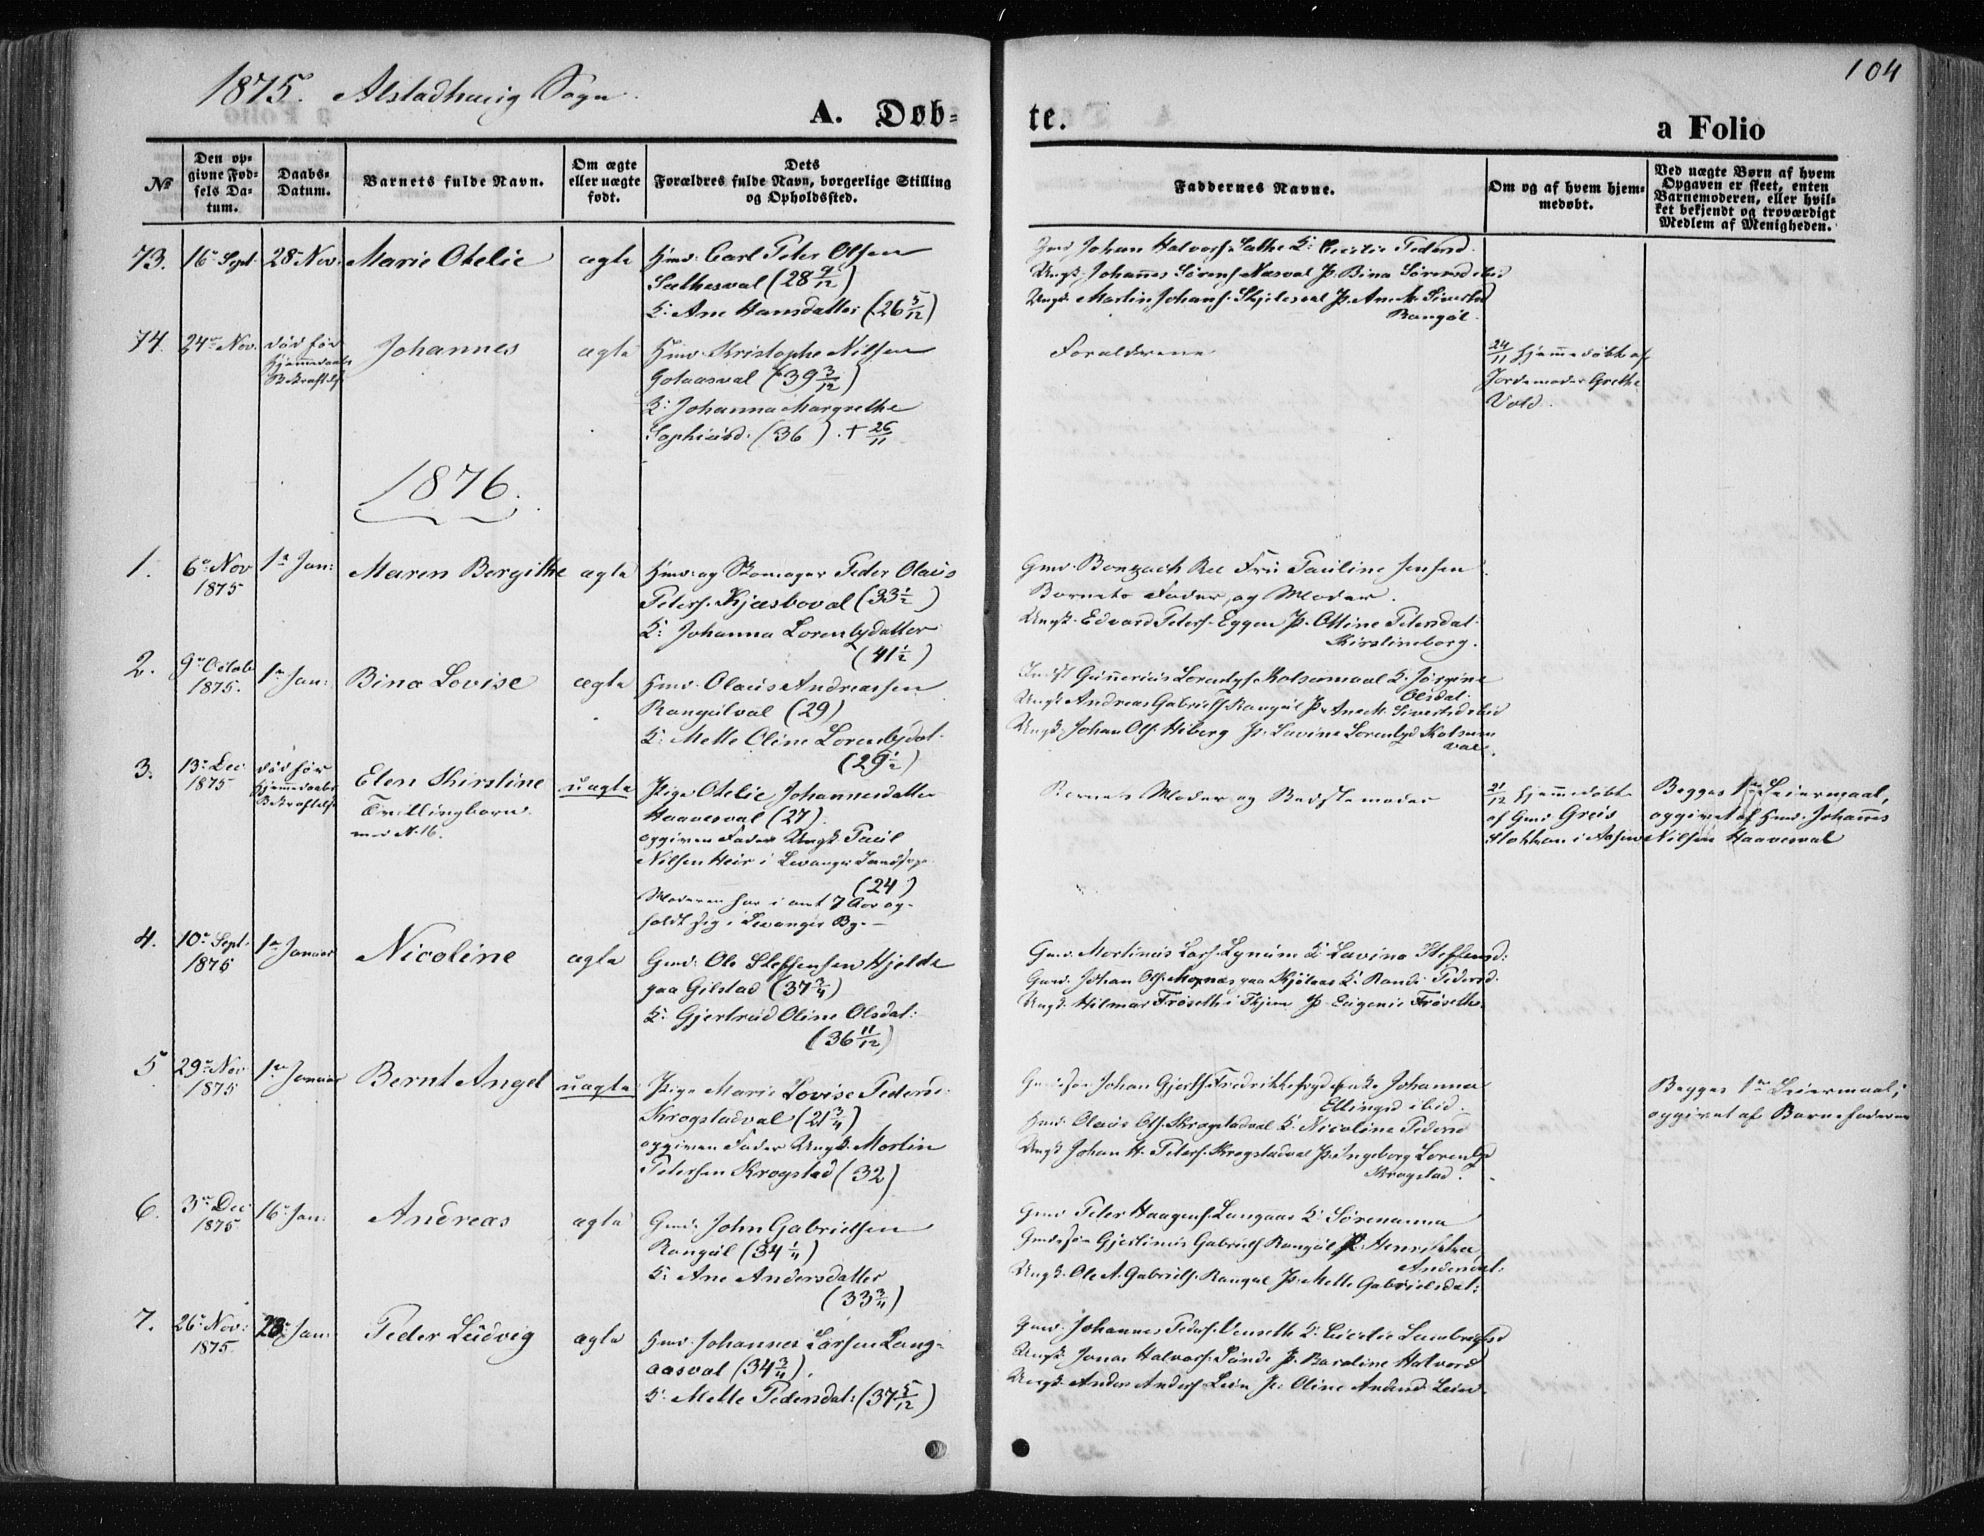 104
1875. Alstadhaug Sogn.
A. Døb-
te.
a Folio
No
Den op-
givne Fød-
sels Da-
tum.
Daabs-
Datum.
Barnets fulde Navn.
Om ægte
eller uægte
født.
Dets
Forældres fulde Navn, borgerlige Stilling
og Opholdssted.
Faddernes Navne.
Om og af hvem hjem-
medøbt.
Ved uægte Børn af hvem
Opgaven er skeet, enten
Barnemoderen, eller hvil-
ket bekjendt og troværdigt
Medlem af Menigheden.
73. 16de Sept. 28de Nov. Marie Otelie ægte Hmd. Carl Peter Olsen
Salthesval (28 9/12)
K: Ane Hansdatter (26 5/12)
Gmd. Johan Halvors. Salthe K: Pedersd.
Ungk. Johannes Sørens. Næsval P. Bina Sørensd. ibid
Ungk. Martin Johans. P. Ane M. Sivertsd
Rangul
74. 24de Nov. død før
Hjemmedaabs
Bekræftelse
Johannes ægte Hmd. Kristophe Nilsen
Golaasval (39 3/12)
K: Johanna Margrethe
Sophiasd. (36) + 26/11
Forældrene
24/11 hjemmedøbt af
Jordemoder Grethe
Vold.
1876.
1. 6te Nov 1ste Jan: Maren Bergithe ægte Hmd. og Skomager Peder Olaus
1875
Peters. Kjæsboval (33 1/2)
K: Johanna Lorentsdatter
(41 1/2)
Gmd. Fru Pauline Jensen
Barnets Fader og Moder.
Ungk. Edvard Peters. Eggen P. Oline Petersdat
Kirstineborg.
2. 9de Octob 1ste Jan: Bina Lovise ægte Hmd. Olaus Andreassen
1875.
Rangulval (29)
K: Mette Oline Lorentsdat.
(29 1/2)
Gunnerius Lorents. K. Jørgine
Olsdat.
Ungk. Andreas Gabriels. Rangul P. Ane M. Sivertsd. ibid
Ungk. Johan Ols. Hiberg P. Lavina Lorentsd.
val.
3. 13de Dec død før
1875 Hjemmedaabs
Bekræftelse
Elen Kirstine uægte Pige Otelie Johannesdatter
Tvillingbarn
med N. 16.
Haavesval (27)
opgiven Fader Ungk. Paul
Nilsen Heir i Levanger Landsogn
(24)
Moderen har i omt 7 Aar op-
holdt sig i Levanger By.
Barnets Moder og Bedstemoder
21/12 hjemmedøbt
af Gmd. Greis
Stokkan i Aasen
Begges 1ste Leiermaal,
opgivet af Hmd. Johannes
Nilsen Haavesval
4. 10de Sept. 1ste Januar Nicoline ægte Gmd. Ole Steffensen Hjelde
1875
paa Gilstad (37 3/4)
K: Gjertrud Oline Olsdat:
(36 11/12)
Gmd. Martinus Lars. Lynum K. Lavina Steffensd:
Gmd. Johan Ols. paa K. Randi Pedersd.
Ungk. Hilmar Frøseth i P. Eugenie Frøseth.
5 29de Nov 1ste Januar Bernt Angel uægte Pige Marie Lovise Pedersd.
1875
Krogstadval (21 3/4)
opgiven Fader Ungk. Martin
Petersen Krogstad (32)
Johan Gjerts. Enke Johanna
Ellingsd ibid.
Hmd. Olaus Ols. Krogstadval K. Nicoline Pedersd
Ungk. Johan H. Peters. Krogstadval P. Ingeborg Lorentsd
Krogstad.
Begges 1ste Leiermaal;
opgivet af Barnefaderen
6. 3de Dec 16de Jan: Andreas ægte Gmd. John Gabrielsen
1875
Rangul (34 1/4)
K: Ane Andersdatter
(33 3/4)
Gmd. Peter Haagens. Langaas K. Sørenanna
Gjestinus Gabriels. Rangul P. Henrikka
Andersdat:
Ungk. Ole A. Gabriels. Rangul P. Mette Gabrielsdat:
7. 26de Nov: 23de Jan: Peder Ludvig ægte Hmd. Johannes Larsen Lang-
1875.
aasval (34 3/4).
K: Mette Pedersdat: (37 5/12)
Gmd. Johannes Peders. Venseth K. Lambregtsd
Ungk. Jonas Halvors. Sunde P. Karoline Halvorsd
Ungk. Anders Anders. Lein P. Oline Andersd. Lein